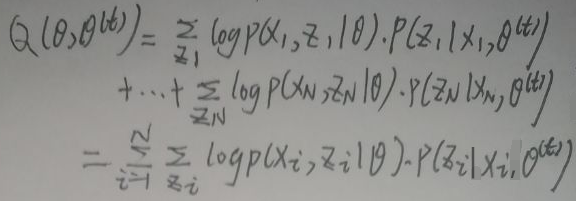 Q(θ,θ^(t)) = Σ_{z₁} log P(x₁,z₁|θ)·P(z₁|x₁,θ^(t))
+⋯+ Σ_{z_N} log P(x_N,z_N|θ)·P(z_N|x_N,θ^(t))
= Σ_{i=1}^{N} Σ_{z_i} log P(x_i,z_i|θ)·P(z_i|x_i,θ^(t))